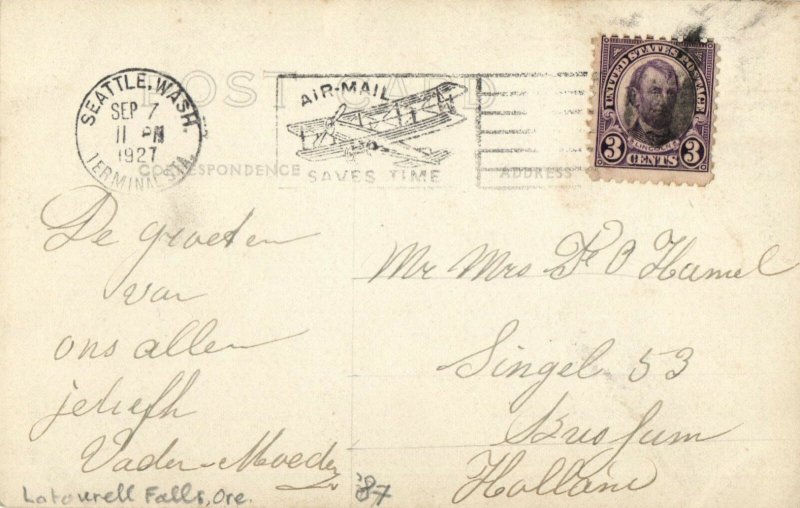 POST CARD
SEATTLE, WASH.
SEP 7
11 PM
1927
TERMINAL STA.
AIR-MAIL
SAVES TIME
UNITED STATES POSTAGE
LINCOLN
3 CENTS 3
CORRESPONDENCE
ADDRESS
De groeten
van
ons allen
Vader-Moeder
Latourell Falls, Ore.
'87
Mr Mrs F O Hamel
Singel 53
Bussum
Holland